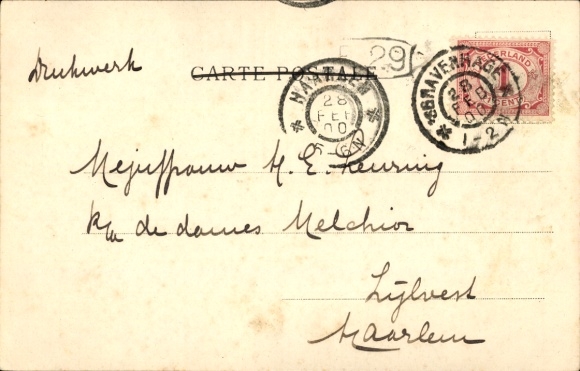 Drukwerk
CARTE POSTALE
29
HAARLEM
28
FEB
00
6-
N
'SGRAVENHAGE
28
FEB
00
1-2N
NEDERLAND
1
CENT
Mejuffrouw H. E.
de dames Melchior
Zijlvest
Haarlem